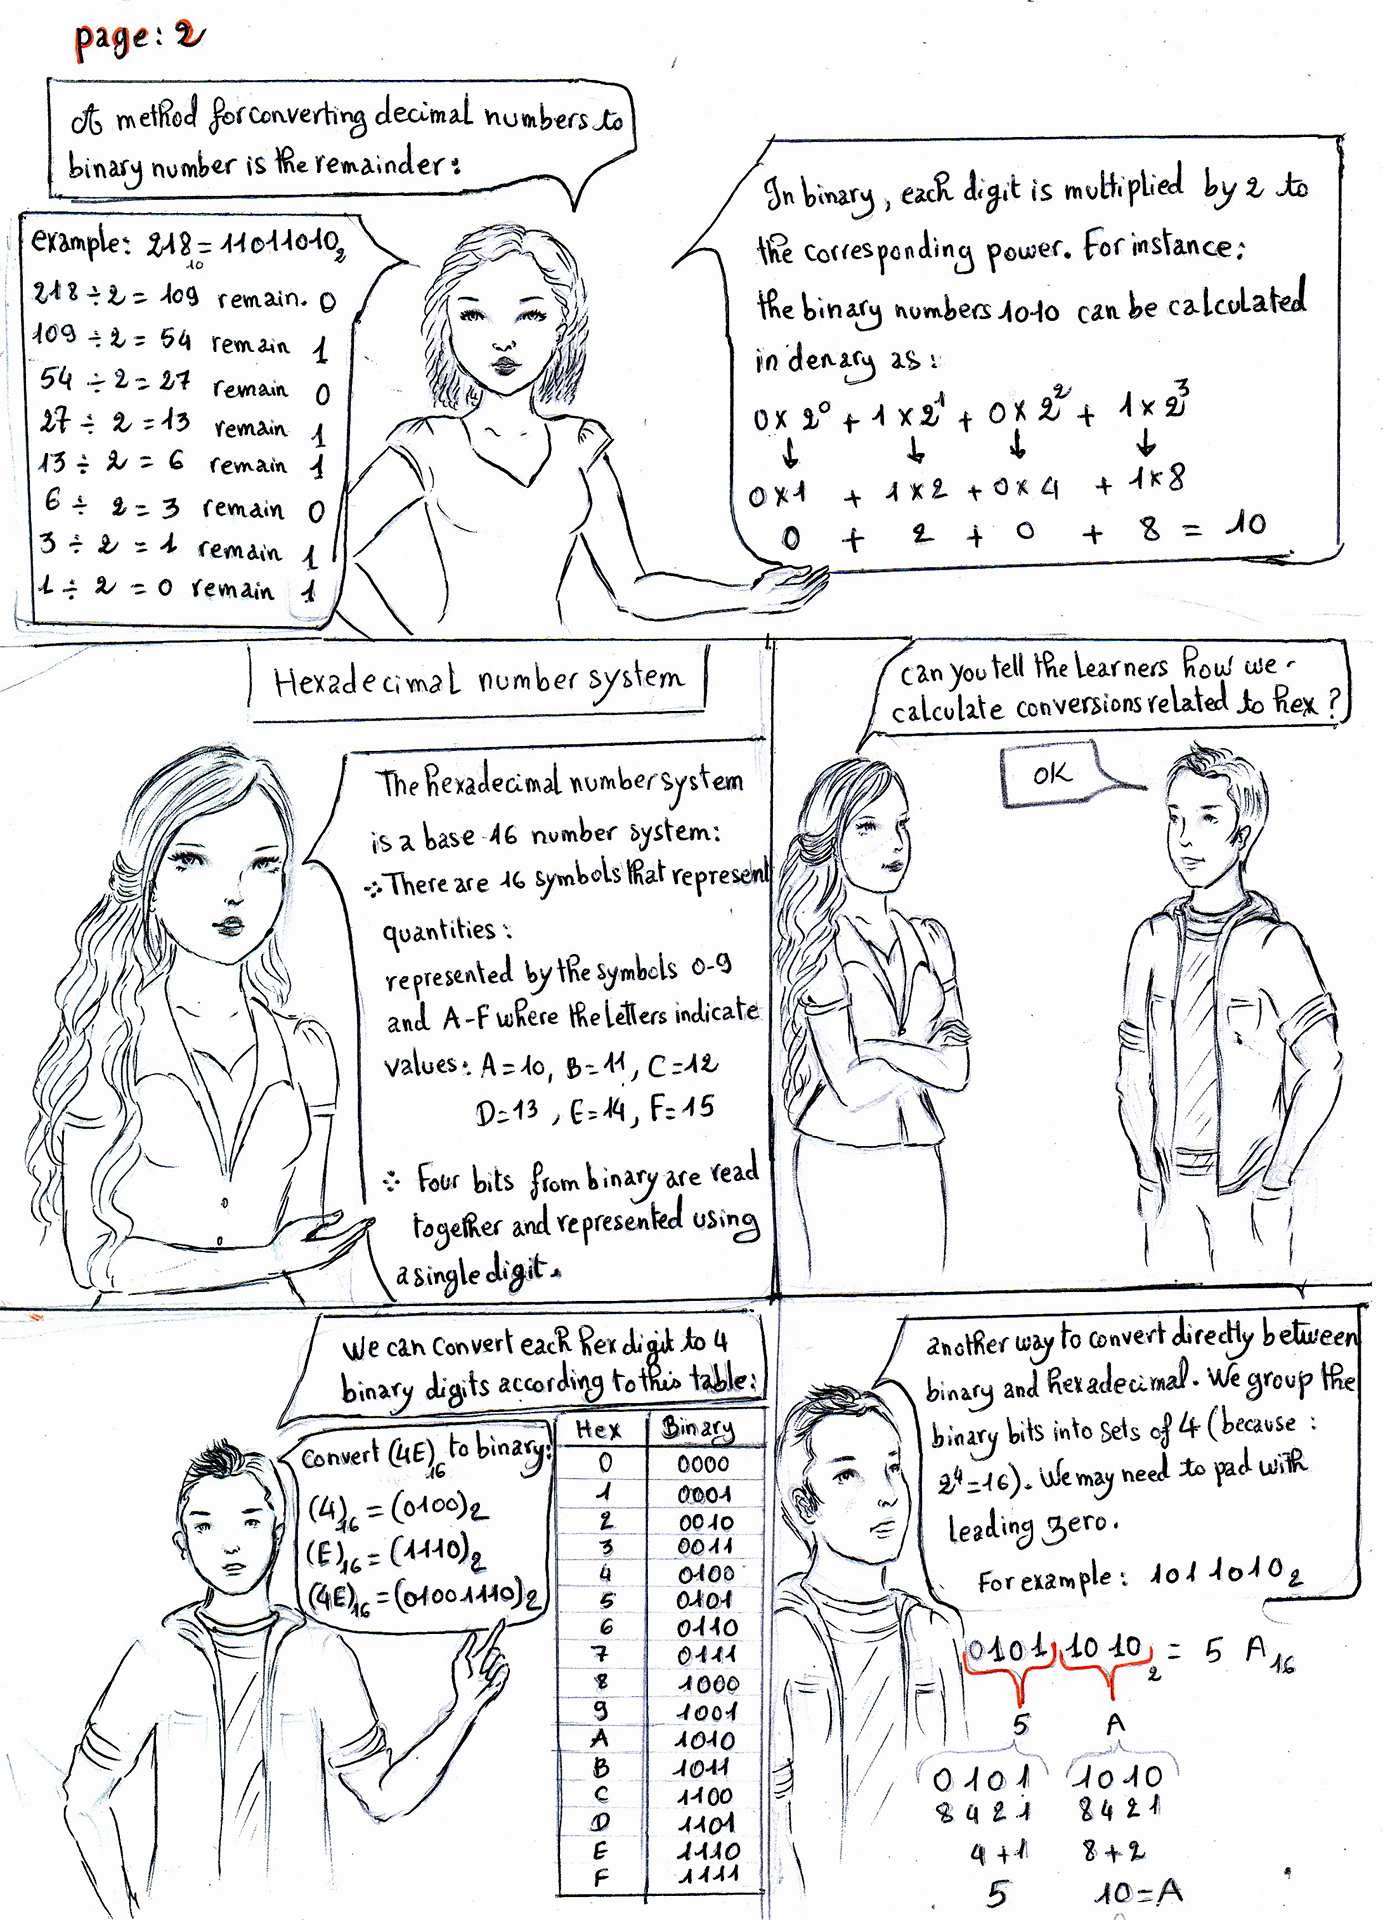 page: 2
A method for converting decimal numbers to
binary number is the remainder:
example: 218₁₀ = 11011010₂
218 ÷ 2 = 109 remain. 0
109 ÷ 2 = 54 remain 1
54 ÷ 2 = 27 remain 0
27 ÷ 2 = 13 remain 1
13 ÷ 2 = 6 remain 1
6 ÷ 2 = 3 remain 0
3 ÷ 2 = 1 remain 1
1 ÷ 2 = 0 remain 1
In binary, each digit is multiplied by 2 to
the corresponding power. For instance:
the binary numbers 1010 can be calculated
in denary as:
0 x 2⁰ + 1 x 2¹ + 0 x 2² + 1 x 2³
↓ ↓ ↓ ↓
0x1 + 1x2 + 0x4 + 1x8
0 + 2 + 0 + 8 = 10
Hexadecimal number system
The hexadecimal number system
is a base 16 number system:
∴ There are 16 symbols that represent
quantities:
represented by the symbols 0-9
and A-F where the letters indicate
values: A=10, B=11, C=12
D=13, E=14, F=15
∴ Four bits from binary are read
together and represented using
a single digit.
can you tell the learners how we
calculate conversions related to hex?
OK
We can convert each hex digit to 4
binary digits according to this table:
convert (4E)₁₆ to binary:
(4)₁₆ = (0100)₂
(E)₁₆ = (1110)₂
(4E)₁₆ = (01001110)₂
Hex Binary
0 0000
1 0001
2 0010
3 0011
4 0100
5 0101
6 0110
7 0111
8 1000
9 1001
A 1010
B 1011
C 1100
D 1101
E 1110
F 1111
another way to convert directly between
binary and hexadecimal. We group the
binary bits into sets of 4 (because:
2⁴=16). We may need to pad with
leading zero.
For example: 1011010₂
0101 1010₂ = 5 A₁₆
5 A
0101 1010
8421 8421
4+1 8+2
5 10=A